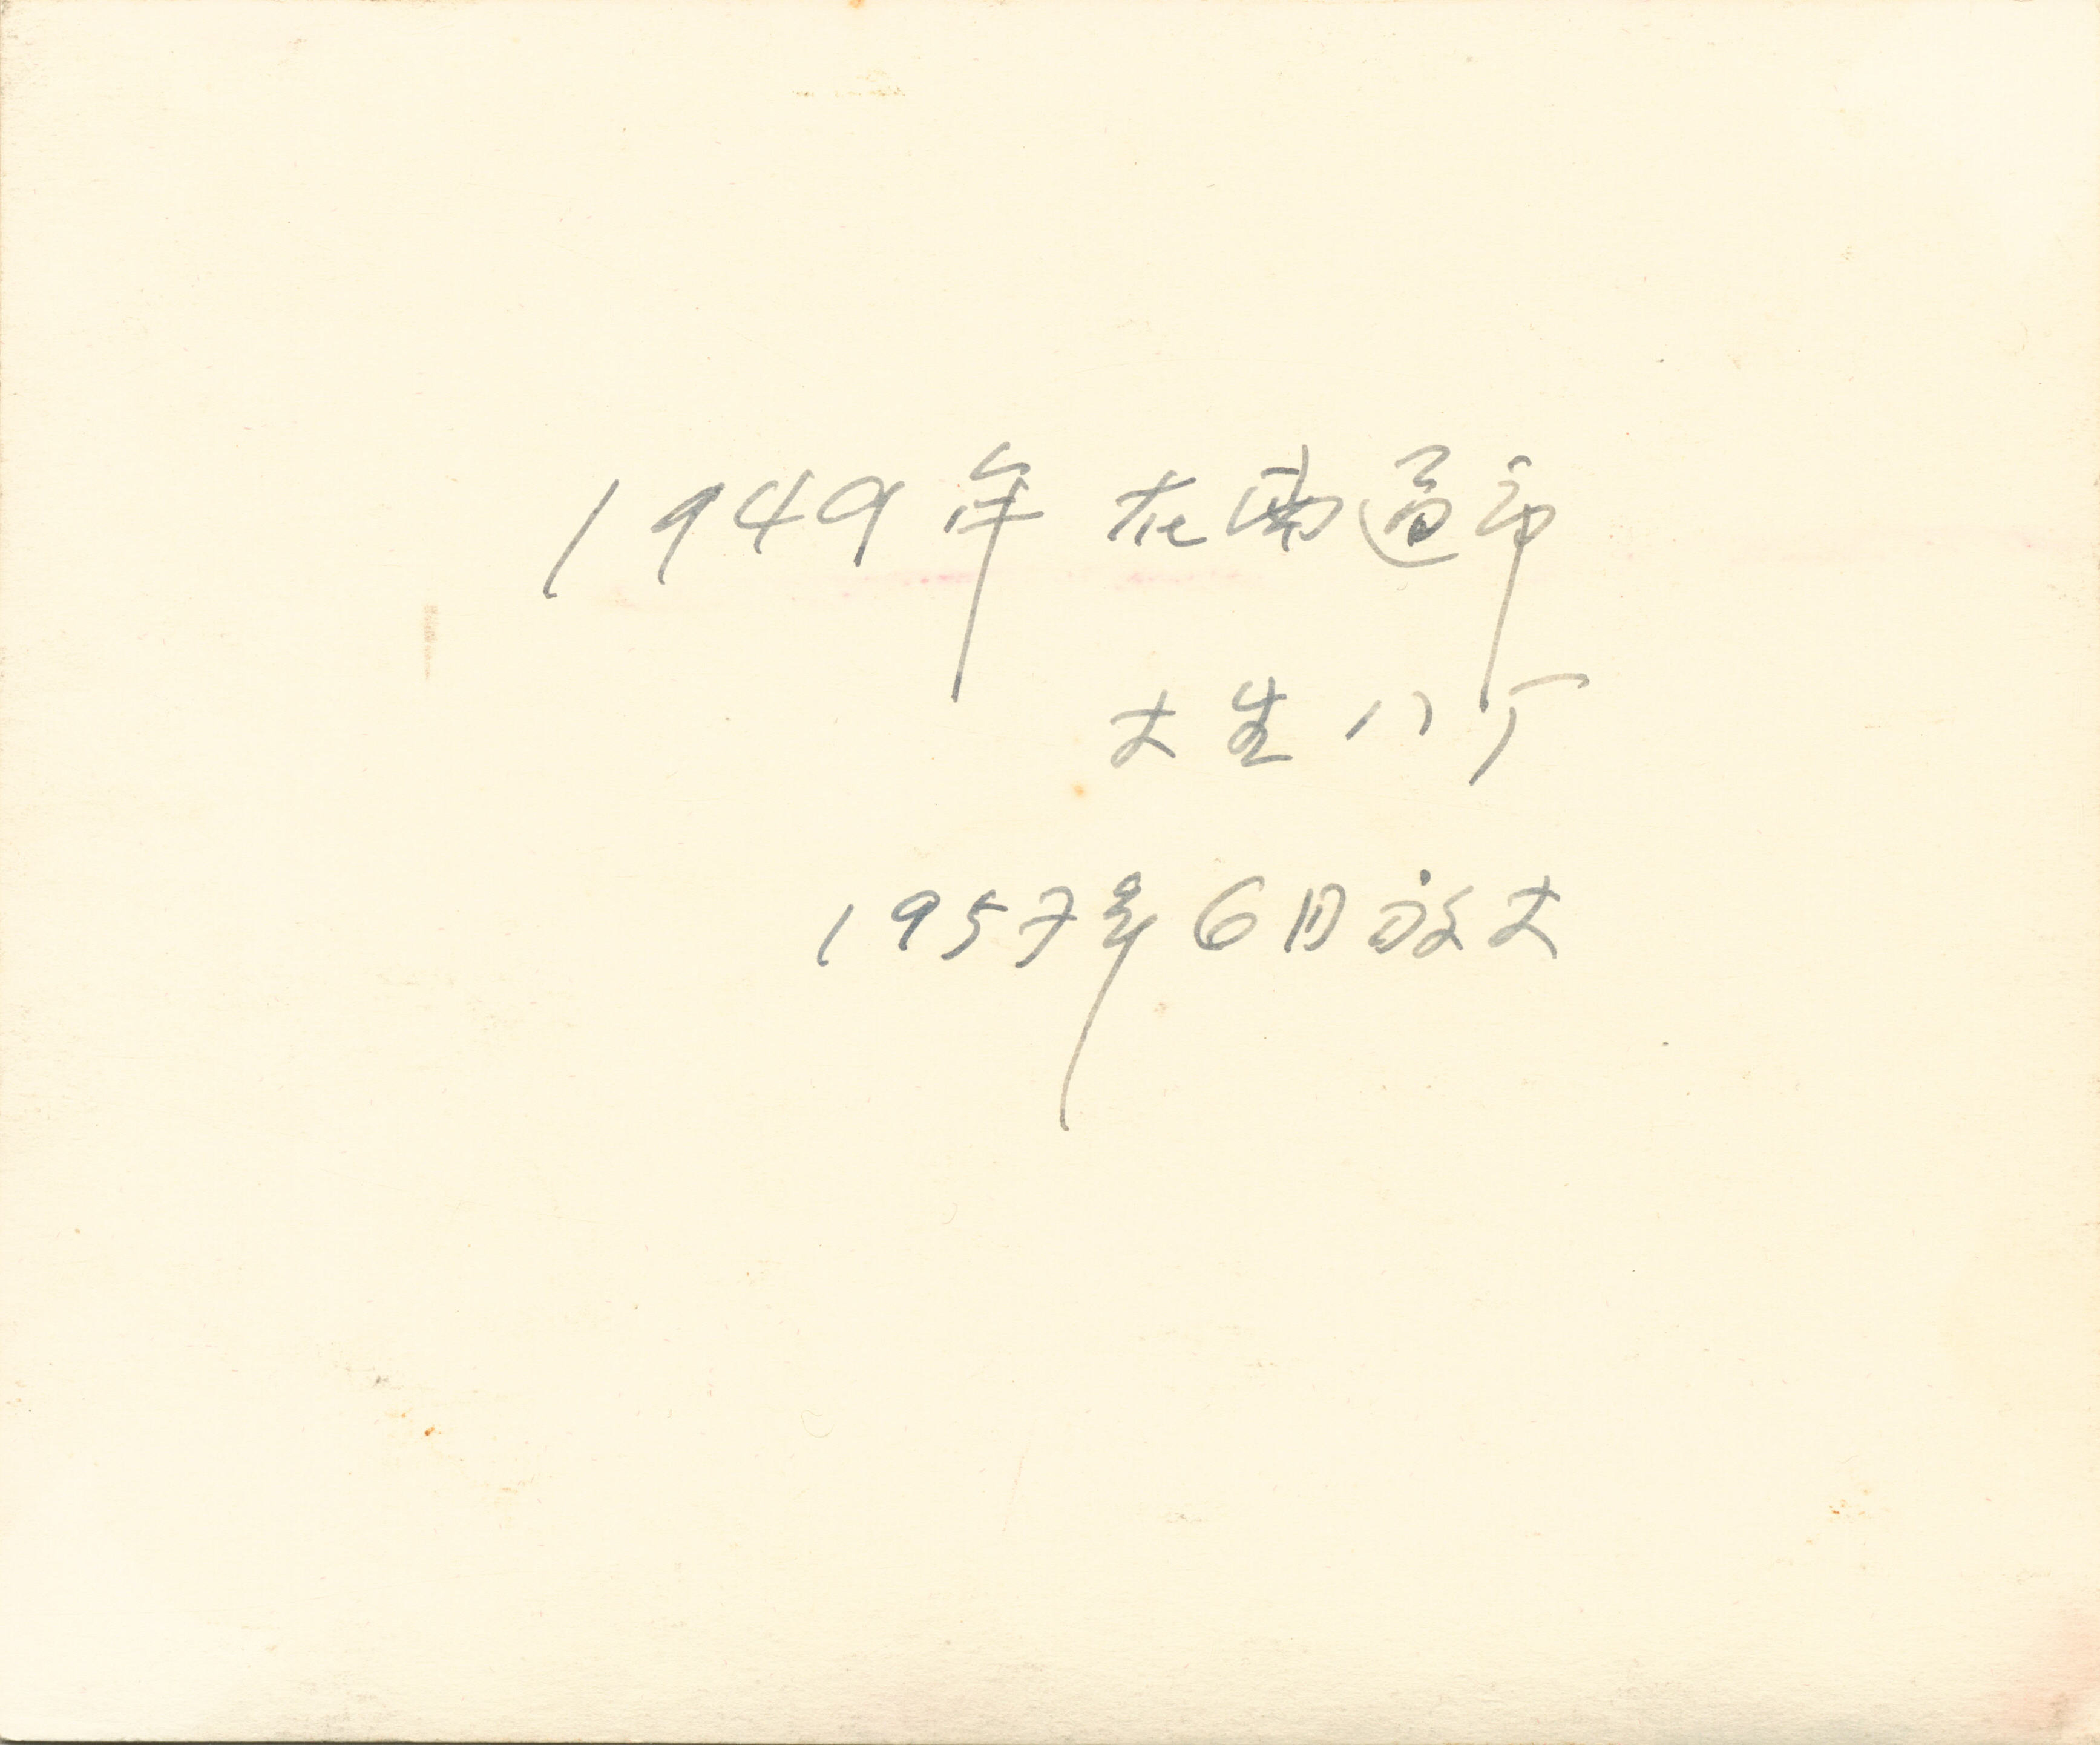 1949年 在南通市
大生八厂
1957年6月放大